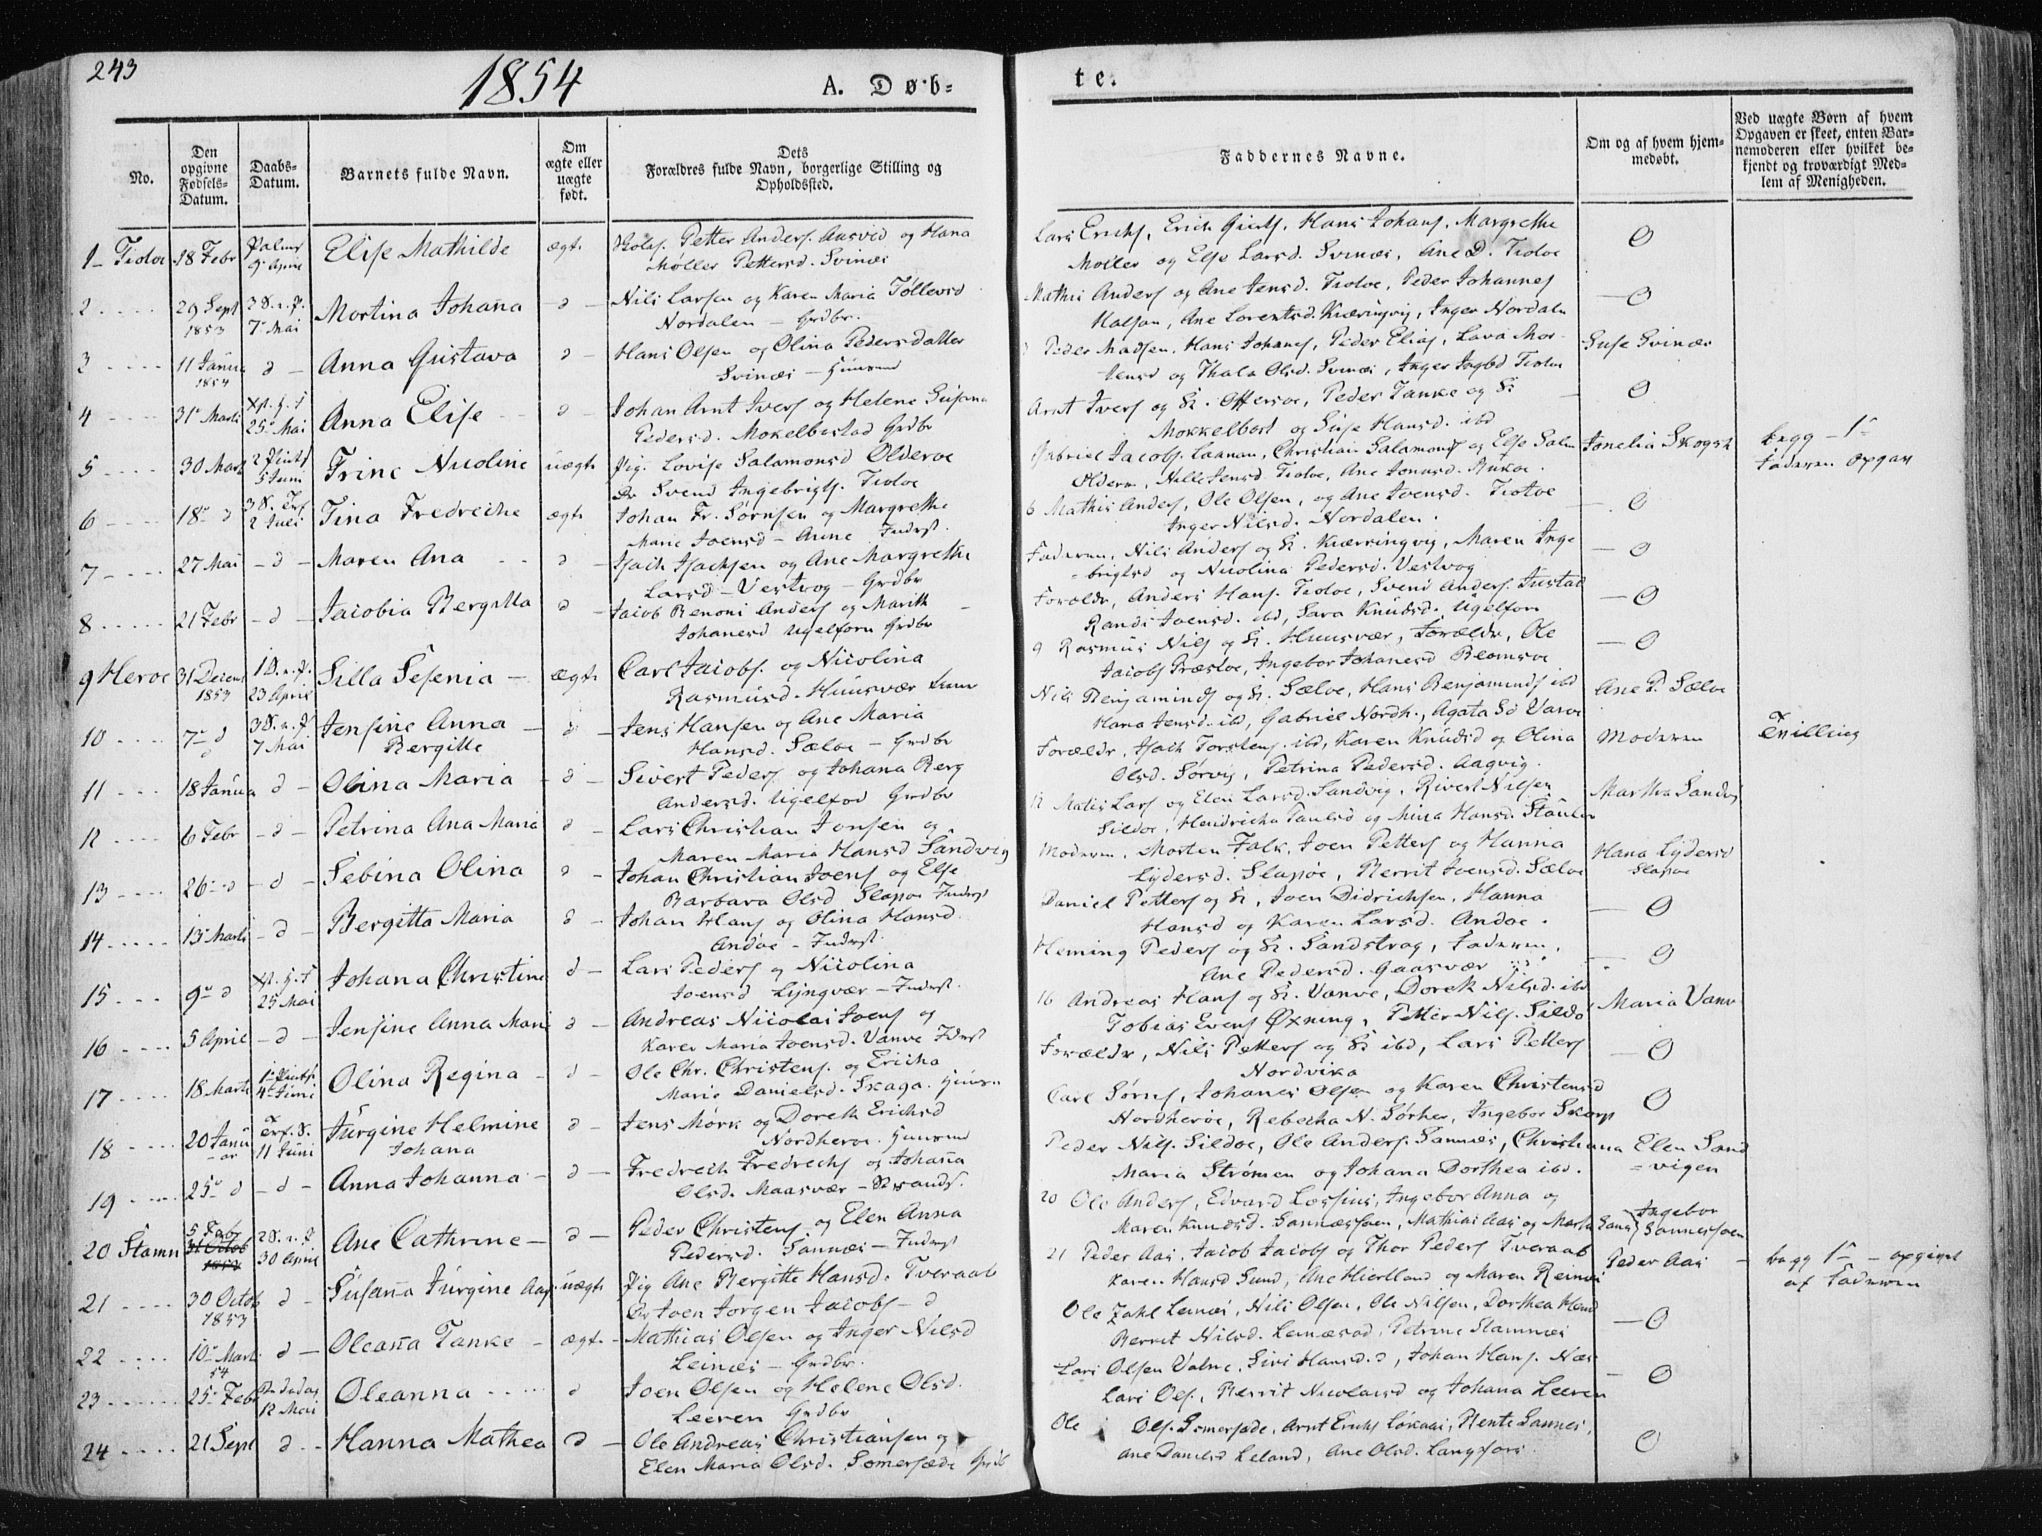 243
1854
A. Døb-
te.
No.
Den opgivne Fødsels-Datum.
Daabs-Datum.
Barnets fulde Navn.
Om ægte eller uægte født.
Dets Forældres fulde Navn, borgerlige Stilling og Opholdssted.
Faddernes Navne.
Om og af hvem hjemmedøbt.
Ved uægte Børn af hvem Opgaven er skeet, enten Barnemoderen eller hvilket bekjendt og troværdigt Medlem af Menigheden.
1 Tiotoe 18 Febr Palmes 9 April Elise Mathilde ægt. Petter Anders. og Hana
Møller Pettersd. Svinæs
Lars Erichs, Erich Hans Johans, Margrethe
Moller og Else Larsd. Svinæs, Ane D. Tiotoe
0
2 29 Sept 1853 7 Mai Mortina Johanna d Nils Larsen og Karen Maria Tollevsd
Nordalen - Grdbr.
Mathis Anders og Ane Jensd. Tiotoe, Peder Johannes
Ane Lorentsd. Kiæringvig, Inger Nordalen
0
3 11 Janua 1854 d Anna Gustava d Hans Olsen og Olina Pedersdatter
Svinæs
Peder Madsen, Hans Johans, Peder Elias, Lava
Jensd og Thala Olsd. Svinæs, Inger Tiotoe
Svinæs
4 31 Marti 25 Mai Anna Elise d Johan Arnt Ivers og Helene Susana
Pedersd. Mokelbostad Grdbr
Arnt Ivers og Peder Tanke og
Mokkelbost og Hansd. ibd
0
5 30 Marti 5 Juni Trine Nicoline uægt Pig. Lovise Salamonsd Olderoe
Svend Ingebrigts. Tiotoe
Gabriel Jacobs. Christian Salamons og Else
Nille Jensd. Tiotoe, Ane Jonasd.
begg 1
Faderen opgav
6 18 d 2 Juli Tina Fredreche ægt Johan Fr. Sørnsen og Margrethe
Marie Joensd - Anne Inderst.
6 Mathis Anders, Ole Olsen, og Ane Joensd. Tiotoe
Inger Nilsd. Nordalen.
0
7 27 Mai d Maren Ana d Isach Isachsen og Ane Margrethe
Larsd - Vestvog - Grdbr
Faderen, Nils Anders og Kiærringvig, Maren Inge-
brigtsd og Nicolina Pedersd. Vestvog
0
8 21 Febr d Jacobia Bergitta d Jacob Benoni Anders og Marith
Johanesd Ugelforn Grdbr
Forældr, Anders Hans. Tiotoe, Svend Anders.
Randi Joensd. ibd, Sara Knudsd. Ugelforn
0
9 Heroe 31 Decem 1853 23 April Silla Sefenia ægt. Carl Jacobs. og Nicolina
Rasmusd. Huusvær
9 Rasmus Nils og Huusvær, Forældr, Ole
Jacobs Præstoe, Ingebor Johanesd Blomsoe
0
10 7 d 7 Mai Jensine Anna
Bergitte d Jens Hansen og Ane Maria
Hansd. Sæloe - Grdbr
Nils Benjamins og Sæloe, Hans Benjamins ibd
Hana Jensd. ibd, Gabriel Nordh., Agata
Ane P. Sælve
11 18 Janua d Olina Maria d Sivert Peders og Johana Berg
Andersd. Ugelfod Grdbr
Forældr, Isach Torstens. ibd, Karen Knudsd og Olina
Olsd. Sørvig, Petrina Pedersd. Aagvig.
Moderen
Tvilling
12 6 Febr d Petrina Ana Maria d Lars Christian Jonsen og
Maren Maria Hansd Sandvig
12 Matis Lars og Elen Larsd. Sandvig, Nilsen
Sildoe, Hendricha Paulsd og Mina Hansd.
Martha Sandvig
13 26 d d Sebina Olina d Johan Christian Joens og Else
Barbara Olsd Slapoe Inderst
Moderen, Morten Falk, Joen Petters og Hanna
Lydersd. Slapoe, Berrit Joensd. Sælve
Hana Lydersd
Slapoe
14 13 Marti d Bergitta Maria d Johan Hans og Olina Hansd.
Andøe - Inderst.
Daniel Petters og Joen Didrichsen, Hanna
Hansd og Karen Larsd. Andoe.
0
15 9 d 25 Mai Johana Christine d Lars Peders og Nicolina
Joensd Lyngvær - Inderst.
Heming Peders og Sandstrag, Faderen,
Ane Pedersd. Gaasvær
0
16 5 April d Jensine Anna Mari d Andreas Nicolai Joens og
Karen Maria Joensd. Vanve Inderst
16 Andreas Hans og Vanve, Doreh Nilsd. ibd
Tobias Evens Øxning, Petter Nils. Sildo
Maria Vanv
17 18 Marti 4 Juni Olina Regina d Ole Chr. Christens. og Ericha
Marie Danielsd. Skaga.
Forældr, Nils Petters og ibd, Lars Petters
Nordvika
0
18 20 Janu-ar 11 Juni Jurgine Helmine
Johana d Jens Mørk og Doreh Erichsd
Nordheroe.
Carl Sørns, Johanes Olsen og Karen Christensd
Nordherøe, Rebecha N. Sørher, Ingebor Skorp
0
19 25 d d Anna Johanna d Fredrech Fredrechs og Johanna
Olsd. Maasvær - Strands.
Peder Nils. Sildoe, Ole Anders. Sannæs, Christiana
Maria Strømen og Johana Dorthea ibd.
Elen Sand-
vigen
20 Stamn 5 Feb 31 Octob 1853 30 April Ane Cathrine d Peder Christens og Elen Anna
Pedersd. Sannæs - Inderst
20 Ole Anders, Edvard Lossius, Ingebor Anna og
Maren Knudsd. Sannæssøen, Mathias Aas og Marth
Ingebor
Sannessøen
21 30 Octob 1853 d Susanna Jurgine Aas uægt Pig Ane Bergitte Hansd. Tveraab
Joen Jorgen Jacobs - d
21 Peder Aas, Jacob Jacobs og Thor Peders Tveraab
Karen Hansd Sund, Ane Hiertland og Maren Reinæs
Peder Aas
begg 1 - opgivet
af Faderen
22 10 Marti 54 d Oleanna Tanke ægt Mathias Olsen og Inger Nilsd
Leinæs - Grdbr.
Ole Zahl Leinæs, Nils Olsen, Ole Nilsen, Dorthea
Berrit Nilsd. Petrine Stamnæs
0
23 25 Febr 12 Mai Oleanna d Joen Olsen og Helene Olsd.
Leeren Grdbr
Lars Olsen Valne, Sivi Hansd. d, Johan Hans. Næs
Lars Ols, Berrit Nicolaisd og Johana Leeren
0
24 21 Sept d Hanna Mathea d Ole Andreas Christiansen og
Elen Maria Olsd. Somersæde
Ole Ols. Somersæde, Arnt Erichs Løkaas, Bente Sannes,
Ane Danielsd Leland, Ane Olsd. Langsfors
0